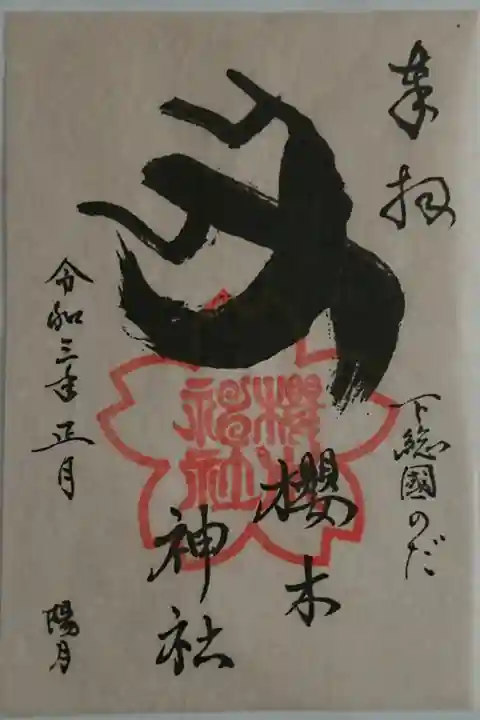 奉拝
下総國のだ
櫻木
神社
令和三年正月
陽月
櫻木
神社